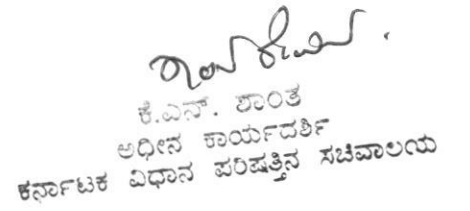 ಕೆ.ಎನ್. ಶಾಂತ
ಅಧೀನ ಕಾರ್ಯದರ್ಶಿ
ಕರ್ನಾಟಕ ವಿಧಾನ ಪರಿಷತ್ತಿನ ಸಚಿವಾಲಯ